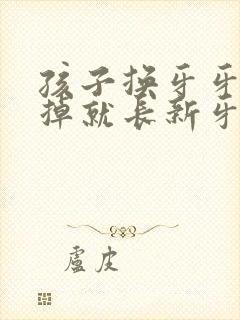 孩子换牙牙
掉就长新牙
卢皮